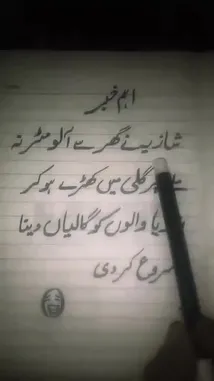 اہم خبر
شازیہ نے گھر سے آلو مٹر نہ
پر گلی میں کھڑے ہو کر
والوں کو گالیاں دینا
شروع کر دی